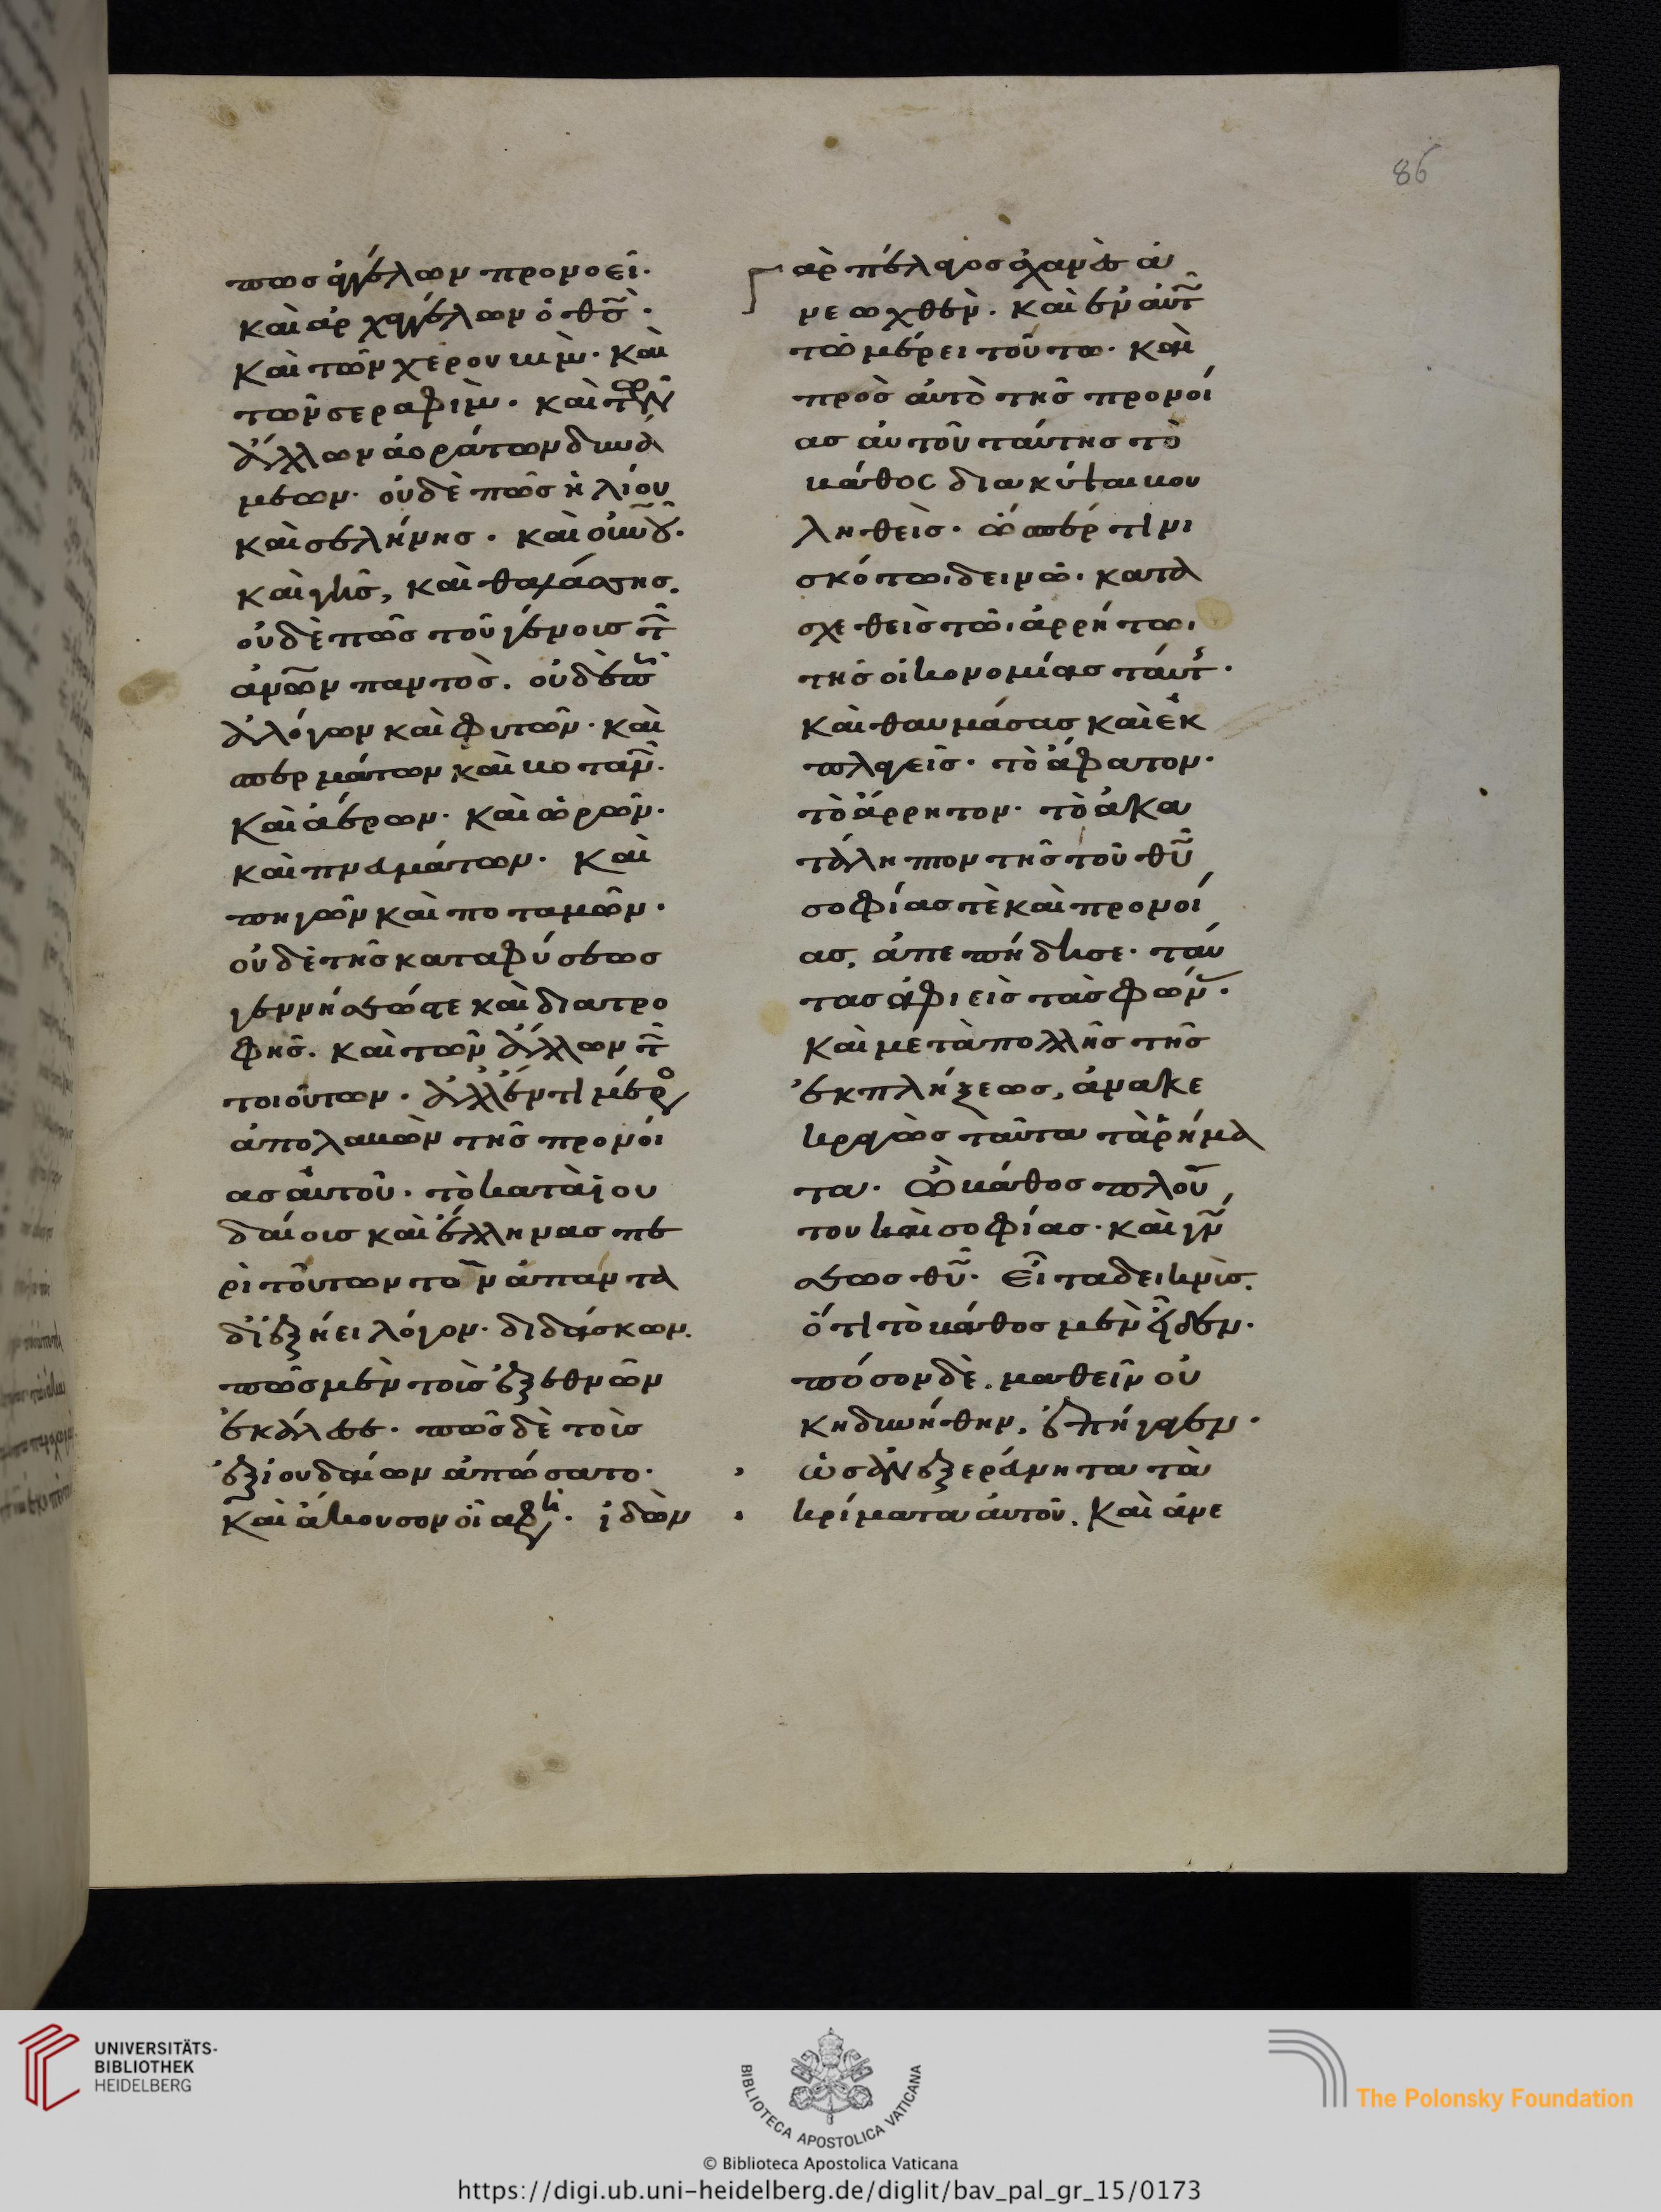 86
πῶσ ἀγγέλων προνοεῖ·
καὶ ἀρχαγγέλων ὁ θ̅σ̅·
καὶ τῶν χερουβὶμ· καὶ
τῶν σεραφὶμ· καὶ τῶν
ἄλλων ἀοράτων δυνά
μεων· οὐδὲ πῶσ ἡλίου
καὶ σελήνησ· καὶ οὐ̅ν̅ο̅υ̅·
καὶ γῆσ, καὶ θαλάσσησ.
οὐδὲ πῶσ τοῦ γένουσ τ
ἀν̅ω̅ν παντὸσ. οὐδὲ τῶν
ἀλόγων καὶ φυτῶν· καὶ
σπερμάτων καὶ βοτανῶν·
καὶ ἀέρων· καὶ ὡρῶν·
καὶ πνευμάτων· καὶ
πηγῶν καὶ ποταμῶν·
οὐδὲ τῆσ κατὰ φύσεωσ
γεννήσεώσ τε καὶ διατρο
φῆσ. καὶ τῶν ἄλλων τ
τοιούτων· ἀλλ' ἕν τι μέρος
ἀπολαβὼν τῆσ προνοί
ασ αὐτοῦ· τὸ κατὰ ἰου
δαίουσ καὶ ἕλληνασ πε
ρὶ τούτων τὸν ἅπαντα
διεξήει λόγον· διδάσκων.
πῶσ μὲν τοὺσ ἐξ ἐθνῶν
ἐκάλεσε· πῶσ δὲ τοὺσ
ἐξ ἰουδαίων ἀπώσατο·
καὶ ἄκουσον οἷα φησί· ἰδὼν
ἂρ πέλαγοσ ἀχανὲσ ἀ
νεωχθὲν. καὶ ἐν αὐτ
τῶ μέρει τούτω· καὶ
πρὸσ αὐτὸ τῆσ προνοί
ασ αὐτοῦ ταύτησ τὸ
βάθοσ διακύψαι βου
ληθεὶσ· ὥσπερ τινὶ
σκότωι δεινῶ· κατα
σχεθεὶσ τῶι ἀρρήτωι
τῆσ οἰκονομίασ ταύτης·
καὶ θαυμάσασ καὶ ἐκ
πλαγεὶσ· τὸ ἄφατον·
τὸ ἄρρητον· τὸ ἀκα
τάληπτον τῆσ τοῦ θ̅υ̅
σοφίασ τὲ καὶ προνοί
ασ, ἀπεπήδησε· ταύ
τασ ἀφιεὶσ τὰσ φων·
καὶ μετὰ πολλῆσ τῆσ
ἐκπλήξεωσ, ἀνακε
κραγὼσ ταῦτα τὰ ῥήμα
τα· ὦ βάθοσ πλού
του καὶ σοφίασ· καὶ γν
σεωσ θ̅υ̅· εἶτα δεικνὺσ.
ὅτι τὸ βάθοσ μὲν εἶδεν·
πόσον δὲ. μαθεῖν οὐ
κ ηδυνήθην. ἐπήγαγεν·
ὡσ ἀνεξεραύνητα τὰ
κρίματα αὐτοῦ. καὶ ἀνε
UNIVERSITÄTS-
BIBLIOTHEK
HEIDELBERG
BIBLIOTECA APOSTOLICA VATICANA
The Polonsky Foundation
© Biblioteca Apostolica Vaticana
https://digi.ub.uni-heidelberg.de/diglit/bav_pal_gr_15/0173